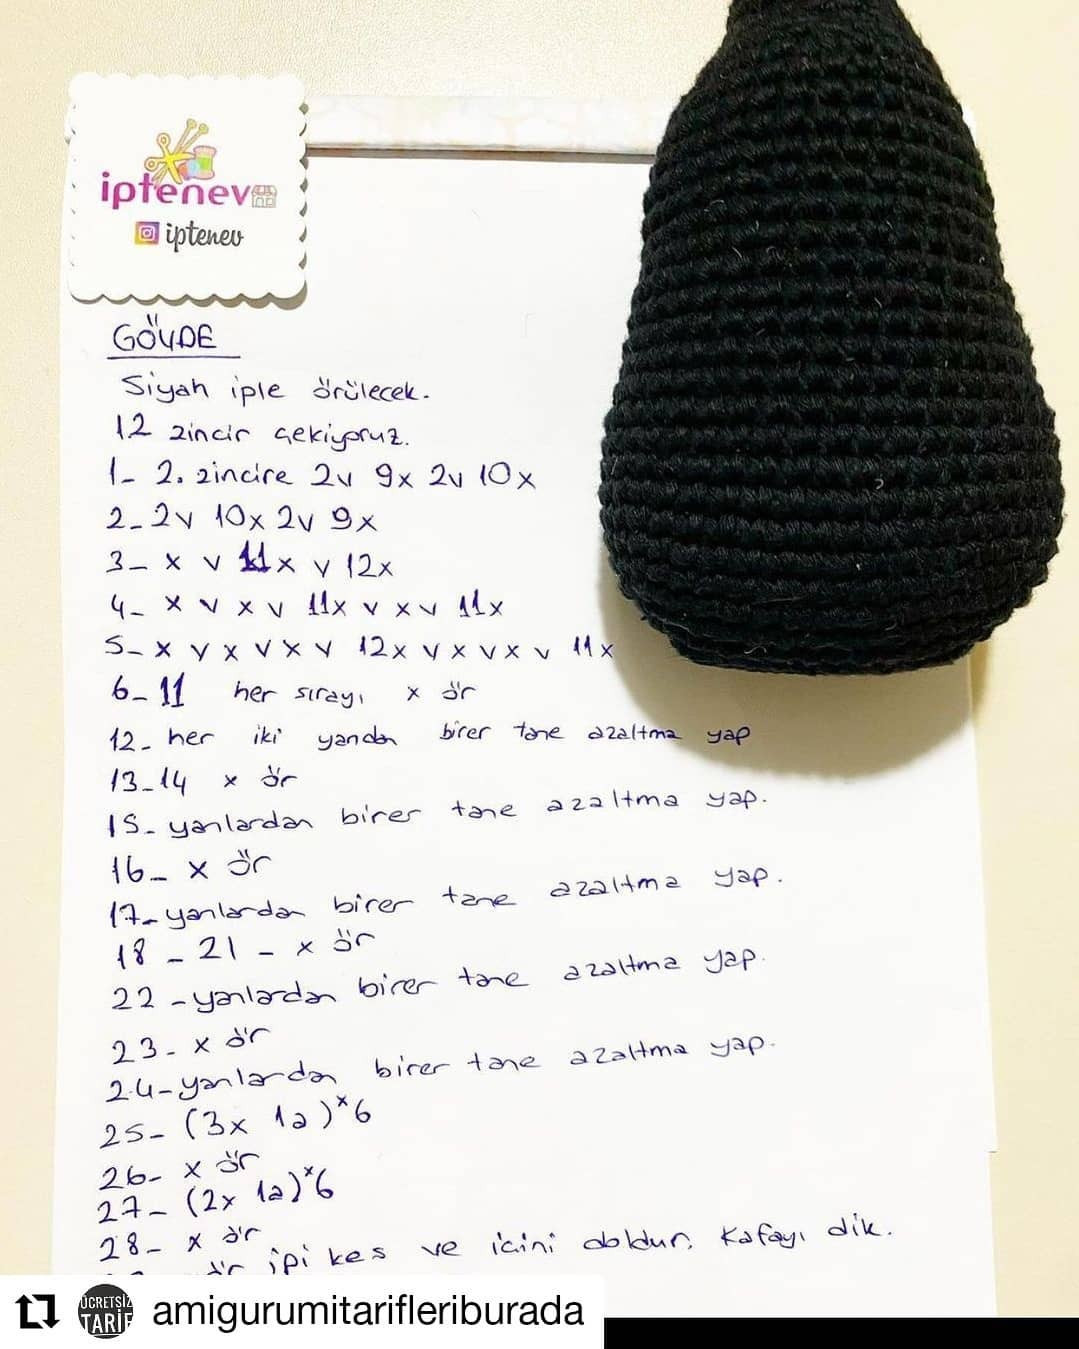 iptenev
iptenev
GÖVDE
Siyah iple örülecek.
12 zincir çekiyoruz.
1- 2. zincire 2v 9x 2v 10x
2- 2v 10x 2v 9x
3- x v 11x v 12x
4- x v x v 11x v x v 11x
5- x v x v x v 12x v x v x v 11x
6-11 her sırayı x ör
12- her iki yandan birer tane azaltma yap
13-14 x ör
15- yanlardan birer tane azaltma yap.
16- x ör
17- yanlardan birer tane azaltma yap.
18-21- x ör
22- yanlardan birer tane azaltma yap.
23- x ör
24- yanlardan birer tane azaltma yap.
25- (3x 1a)*6
26- x ör
27- (2x 1a)*6
28- x ör
ör ipi kes ve içini doldur. Kafayı dik.
ÜCRETSİZ
TARİF
amigurumitarifleriburada